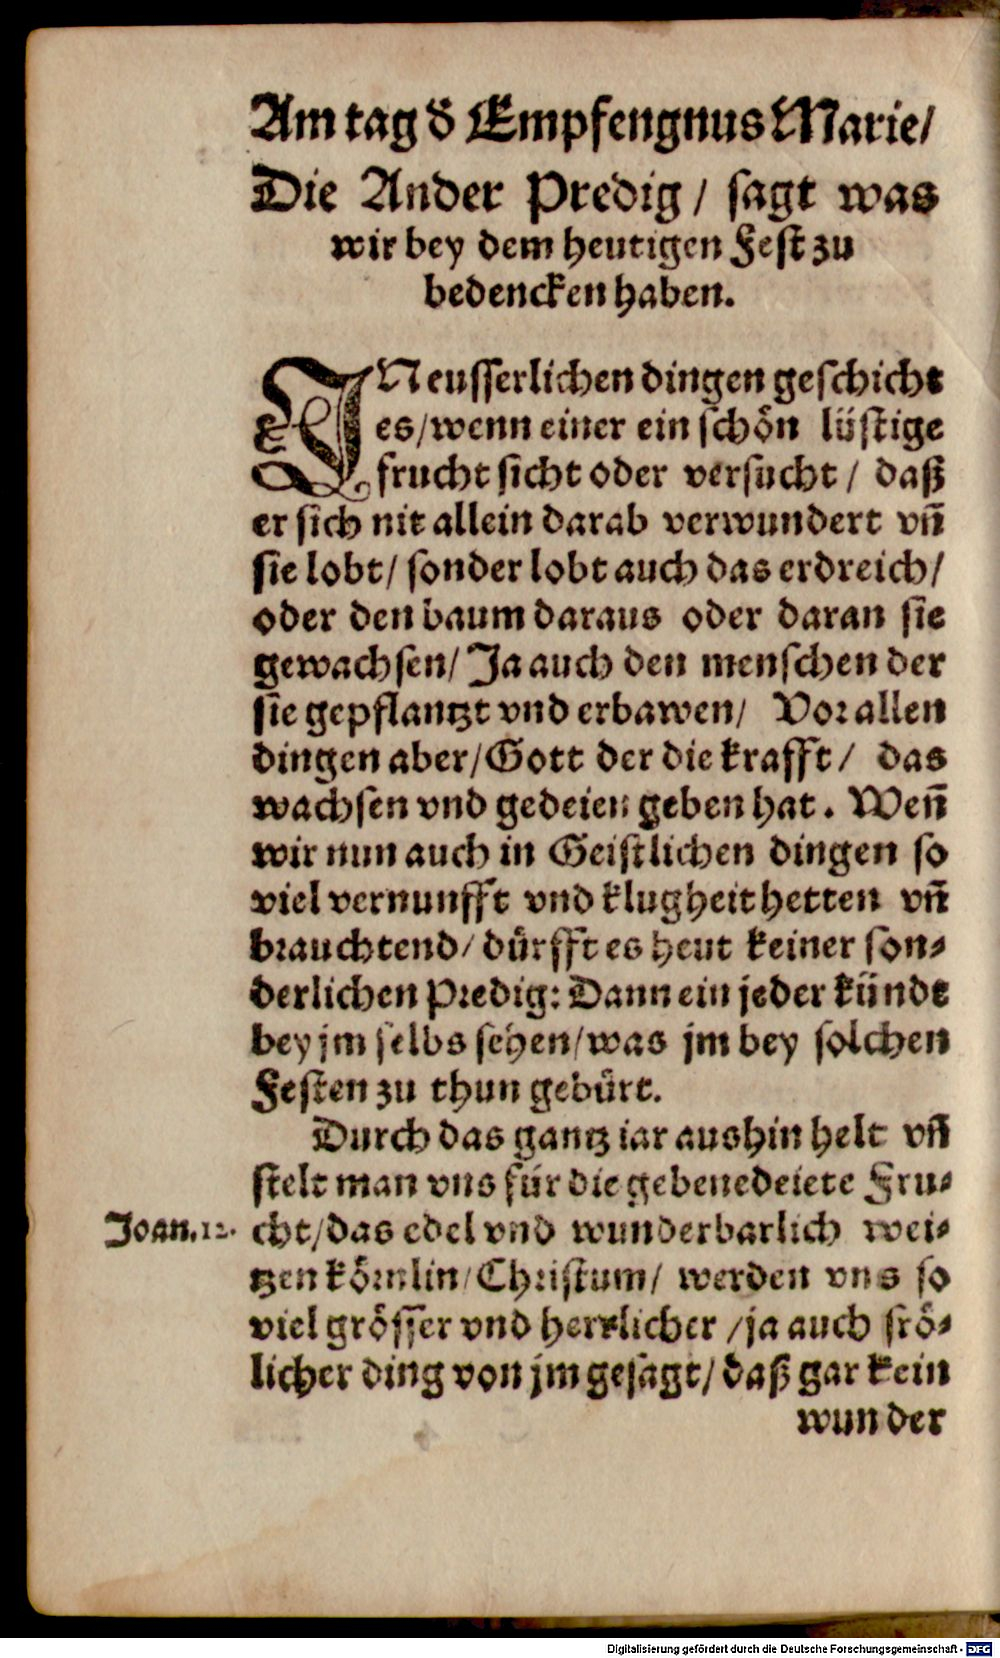 Am tag d̕ Empfengnus Marie/
Die Ander Predig / sagt was
wir bey dem heutigen Fest zu
bedencken haben.
IN eusserlichen dingen geschicht
es/wenn einer ein schön lüstige
frucht sicht oder versucht / daß
er sich nit allein darab verwundert vñ
sie lobt/ sonder lobt auch das erdreich/
oder den baum daraus oder daran sie
gewachsen/ Ja auch den menschen der
sie gepflantzt vnd erbawen/ Vor allen
dingen aber/Gott der die krafft/ das
wachsen vnd gedeien geben hat. Weñ
wir nun auch in Geistlichen dingen so
viel vernunfft vnd klugheit hetten vñ
brauchtend/ dürfft es heut keiner son⸗
derlichen Predig: Dann ein jeder kündt
bey jm selbs sehen/was jm bey solchen
Festen zu thun gebürt.
Durch das gantz iar aushin helt vñ
stelt man vns für die gebenedeiete Fru⸗
Joan.12. cht/das edel vnd wunderbarlich wei⸗
tzen körnlin/Christum/ werden vns so
viel grösser vnd herrlicher /ja auch frö⸗
licher ding von jm gesagt/ daß gar kein
wunder
Digitalisierung gefördert durch die Deutsche Forschungsgemeinschaft - DFG